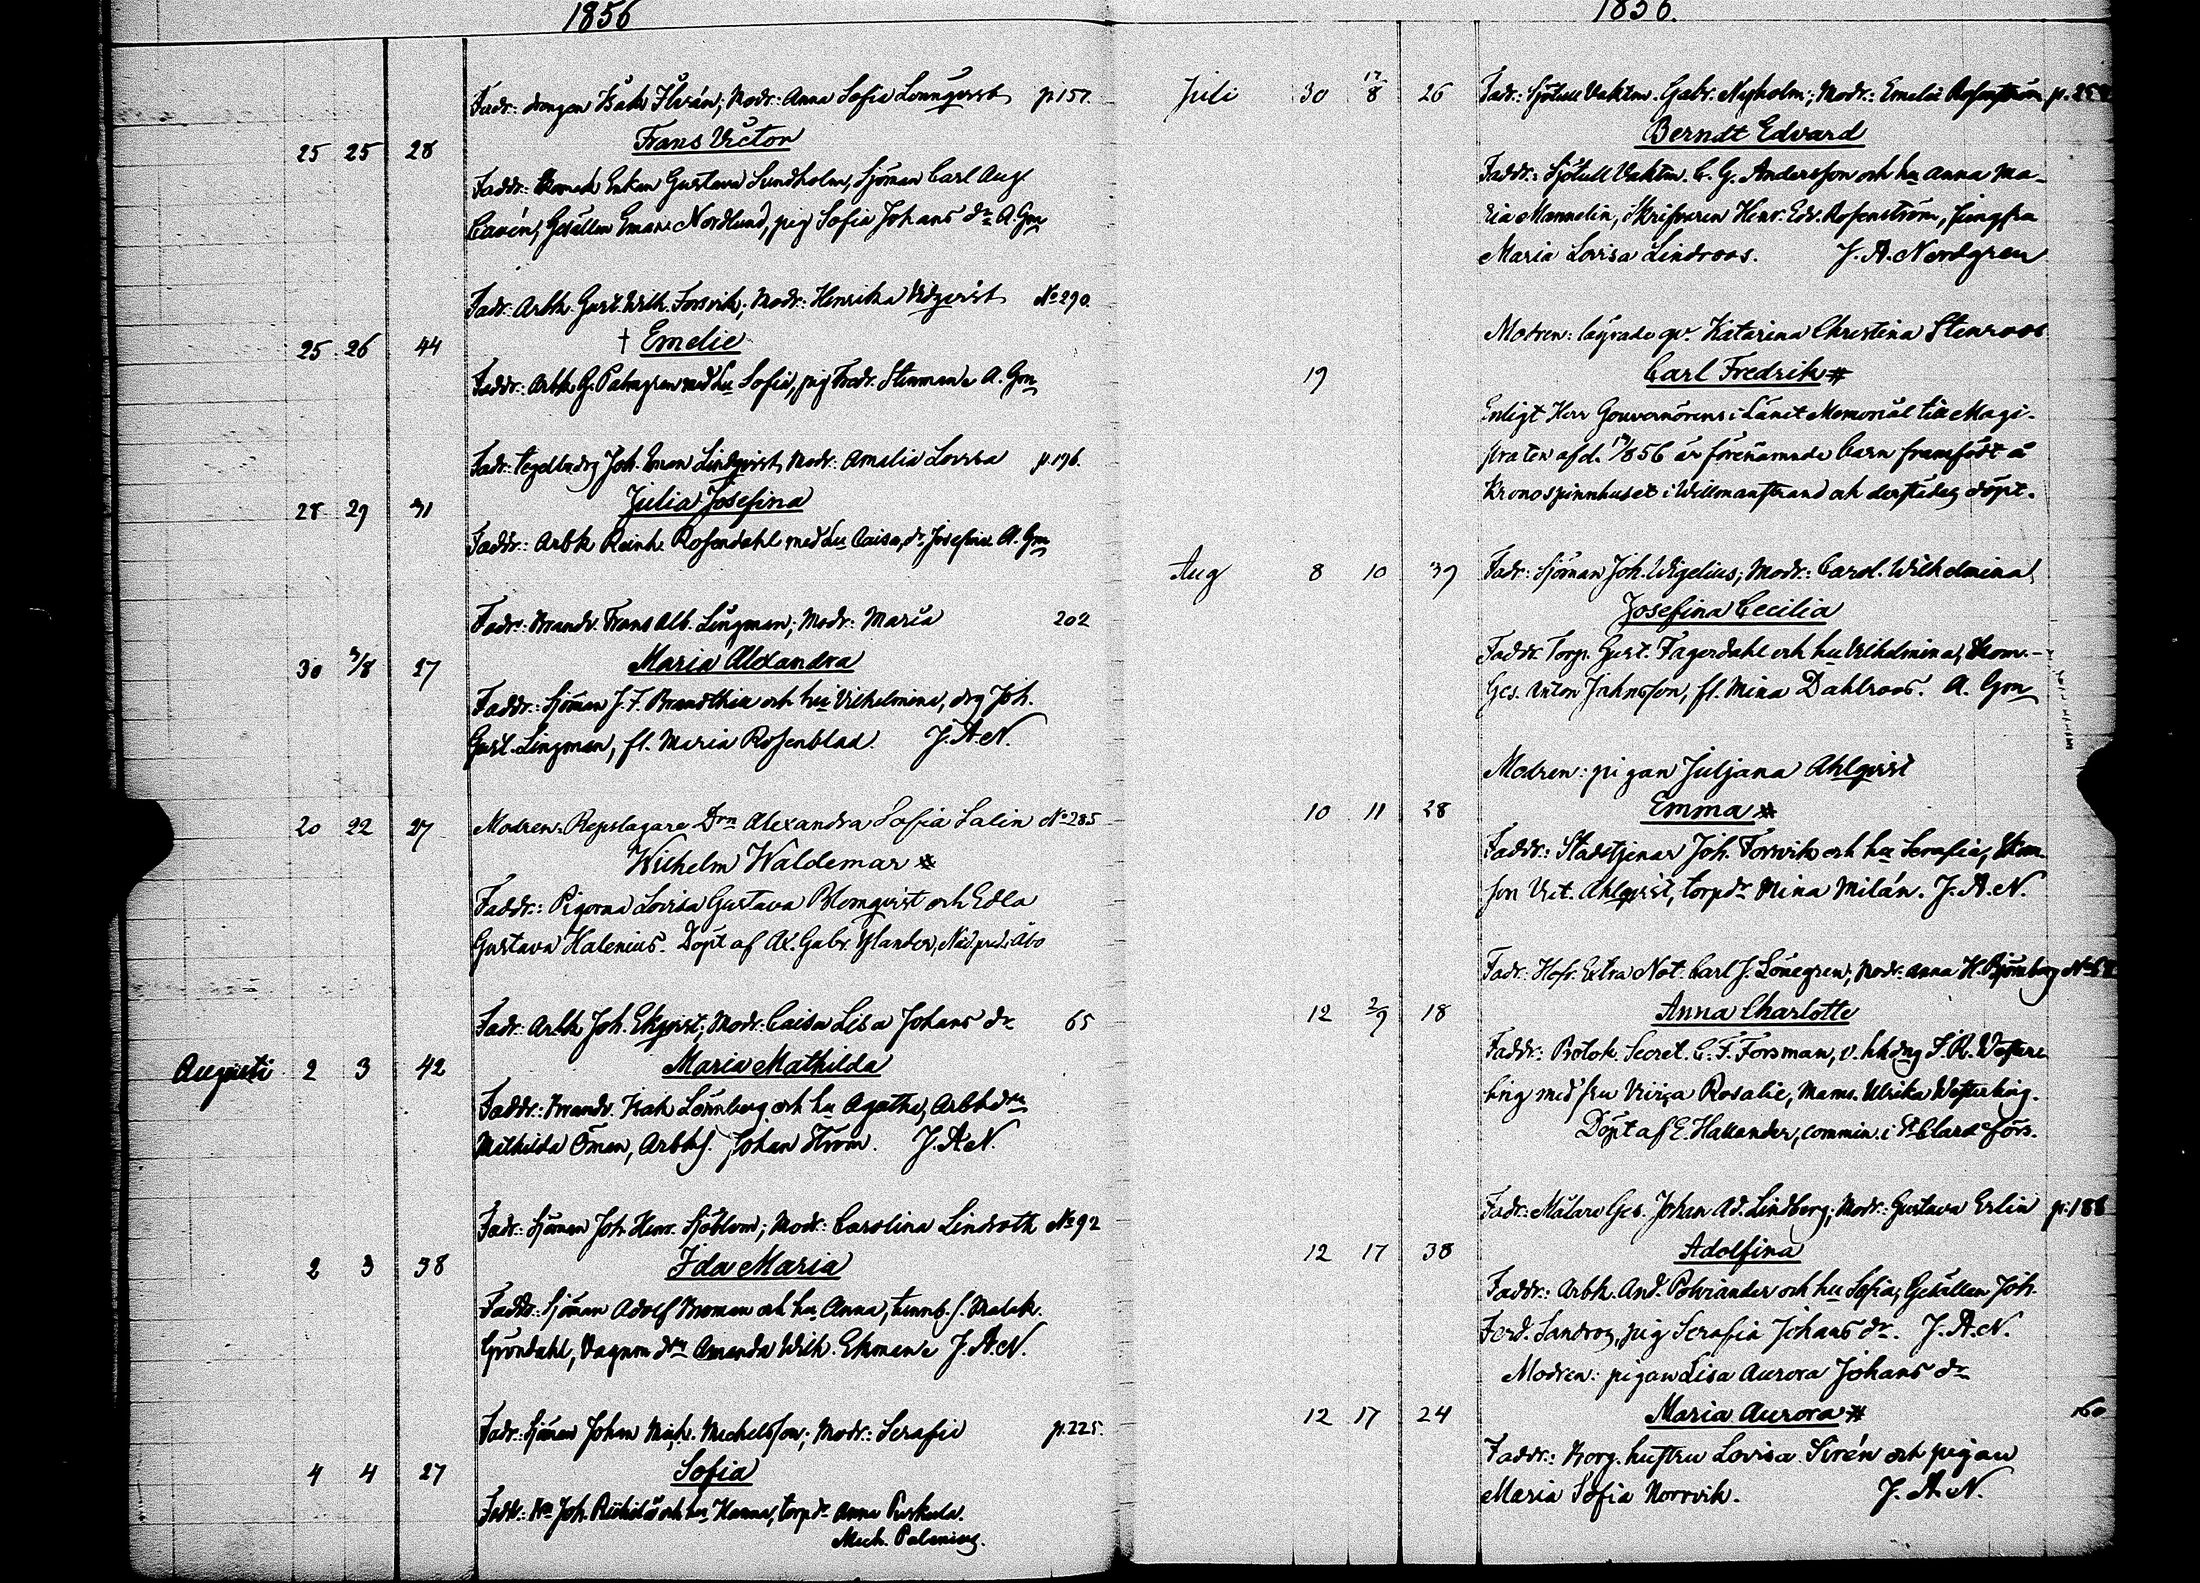 1856
Fadr: drengen Isak Ilván; Modr: Anna Sofia Lönnqvist p157.
25 25 28 Frans Victor
Faddr: Enkan Gustava Sundholm, Sjöman Carl Aug
Cavén, Gesällen Eman. Nordlund, pig Sofia Johans dr A. Gm
Fadr: Arbk. Gust. Wilh. Forsvik; Modr: Henrika Widqvist No 290.
25 26 44 † Emelie
Faddr: Arbk G. Palmgren med hu Sofia, pig Fredr. Stenman A. Gm
Fadr: Joh. Eman Lindqvist, Modr: Amalia Lovisa p.196.
28 29 31 Julia Josefina
Faddr: Arbk Reinh. Rosendahl med hu Caisa, dr Josefina A. Gm
Fadr: Frans Alb. Lingman; Modr: Maria 202
30 3/8 27 Maria Alexandra
Faddr: Sjöman J. F. och hu Vilhelmina, drg Joh.
Gust. Lingman, fl. Maria Rosenblad. J. A. N.
20 22 27 Modren: Repslagare Drn Alexandra Sofia Salin No 285
Wilhelm Waldemar #
Faddr: Pigorna Lovisa Gustava Blomqvist och Edla
Gustava Halenius. Döpt af Ax. Gabr. Ylander, Nåd. pred. i Åbo
Fadr: Arbk Joh. Ekqvist; Modr: Caisa Lisa Johans dr 65
Augusti 2 3 42 Maria Mathilda
Faddr: Isak Lönnberg och hu Agatha, Arbk drn
Mathilda Öman, Arbks. Johan Ström. J. A. N.
Fadr: Sjöman Joh. Henr. Sjöblom; Modr: Carolina Lindroth No 92
2 3 38 Ida Maria
Faddr: Sjöman Adolf Broman och hu Anna, Malak.
Gröndahl, Vagnm drn Amanda Wilh. Ekman J. A. N.
Fadr: Sjöman Johan Mich. Michelsson; Modr: Serafia p.225.
4 4 27 Sofia
Faddr: Joh. och hu Hanna, torp dr Anna
Mich. Polenius.
1856.
Juli 30 17/8 26 Fadr: Sjötull Vaktm. Gabr. Nyholm; Modr: Emelie Rosenström
Berndt Edvard
Faddr: Sjötull Vaktm. C. G. Andersson och hu Anna Ma-
ria Mannelin, Skrifvaren Henr. Edv. Rosenström, jungfru
Maria Lovisa Lindroos. J. A. Nordgren
Modren: lägrade qv. Katarina Christina Stenroos
19 Carl Fredrik #
Enligt Herr Gouvernörens i Länet Memorial till Magi-
straten af d. /856 är förenämnde barn framfödt å
Kronospinnhuset i Willmanstrand och derstädes döpt.
Aug 8 10 39 Fadr: Sjöman Joh. Wigelius; Modr: Carol. Wilhelmina
Josefina Cecilia
Faddr: Torp. Gust. Fagerdahl och hu Vilhelmina,
Ges. Anton Johnsson, fl. Mina Dahlroos. A. Gm
Modren: pigan Juljana Ahlqvist
10 11 28 Emma #
Faddr: Stadstjenar Joh. Forsvik och hu Serafia,
Vict. Ahlqvist, torp dr Mina Milán. J. A. N.
Fadr: Hofr. Extra Not. Carl J. Lönegren; Modr: Anna H. Björnberg
12 2/9 18 Anna Charlotte
Faddr: Protok. Secret. C. F. Forsman, v. hhdng F. R. Wester-
ling med fru Rosalie, Mams. Ulrika Westerling.
Döpt af E. Hallander, commin. i St Clara förs.
Fadr: Målare Ges. Johan Ad. Lindberg; Modr: Gustava Erlin p.188
12 17 38 Adolfina
Faddr: Arbk. And. Polviander och hu Sofia, Gesällen Joh.
Ferd. Sandroos, pig Serafia Johans dr. J. A. N.
Modren: pigan Lisa Aurora Johans dr
12 17 24 Maria Aurora # 160
Faddr: Borg. hustru Lovisa Sirén och pigan
Maria Sofia Norrvik. J. A. N.